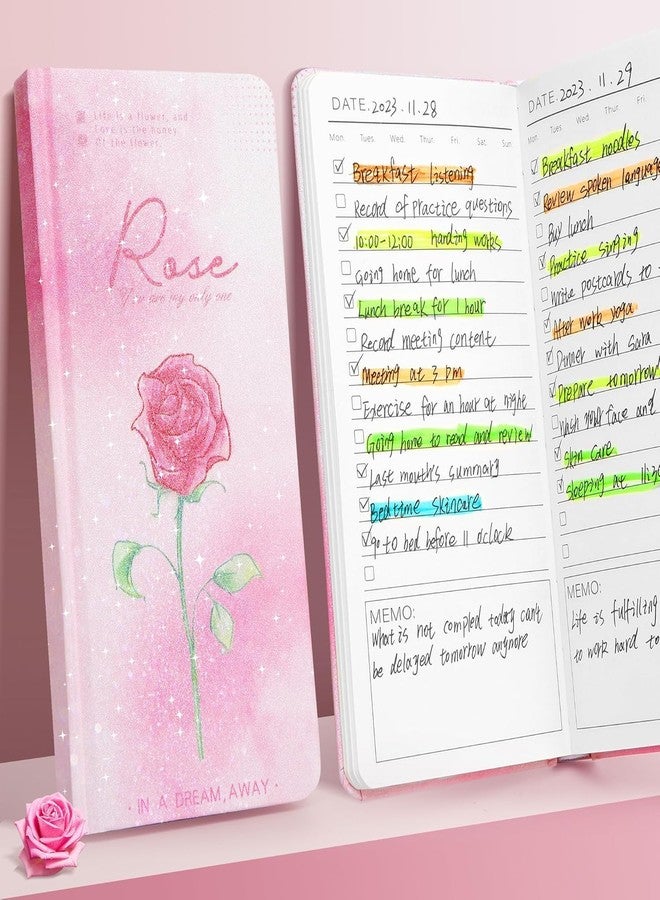 Life is a flower, and
Love is the honey
Of the flower.
Rose
You are my only one
· IN A DREAM, AWAY ·
DATE. 2023. 11. 28
Mon. Tues. Wed. Thur. Fri. Sat. Sun.
Breakfast listening
Record of Practice questions
10:00-12:00 handing works
Going home for lunch
Lunch break for 1 hour
Record meeting content
Meeting at 3 pm
Exercise for an hour at night
Going home to read and review
Last mouth's summary
Bedtime skincare
go to bed before 11 o'clock
MEMO:
What is not compled today can't
be delayed tomorrow anymore
DATE. 2023. 11. 29
Mon. Tues. Wed. Thur. Fri.
Breakfast noodles
Review spoken language
Buy lunch
Practice singing
Write postcards to
After work yoga
Dinner with Sara
Prepare tomorrow
Wash your face and
Skin care
Sleeping at 11:30
MEMO:
Life is fulfilling
to work hard to